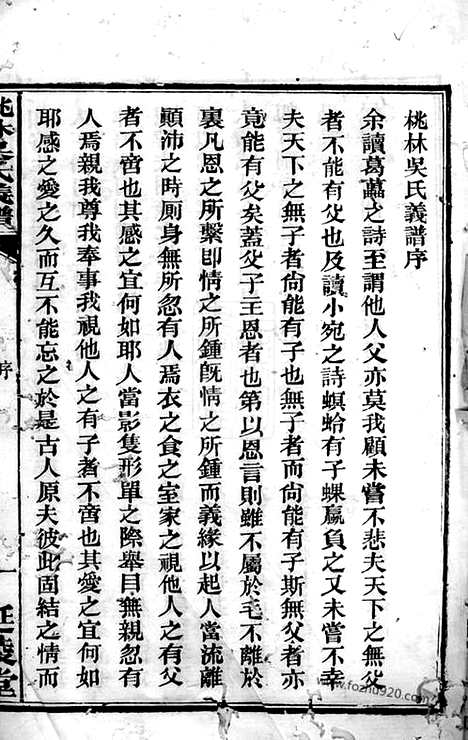 桃林吳氏義譜序
余讀葛藟之詩至謂他人父亦莫我顧未嘗不悲夫天下之無父
者不能有父也及讀小宛之詩螟蛉有子蜾蠃負之又未嘗不幸
夫天下之無子者尙能有子也無子者而尙能有子斯無父者亦
竟能有父矣蓋父子主恩者也第以恩言則雖不屬於毛不離於
裏凡恩之所繫卽情之所鍾旣情之所鍾而義緣以起人當流離
顚沛之時厠身無所忽有人焉衣之食之室家之視他人之有父
者不啻也其感之宜何如耶人當影隻形單之際舉目無親忽有
人焉親我尊我奉事我視他人之有子者不啻也其愛之宜何如
耶感之愛之久而互不能忘之於是古人原夫彼此固結之情而
桃林吳氏義譜
序
一
www.fozhu920.com